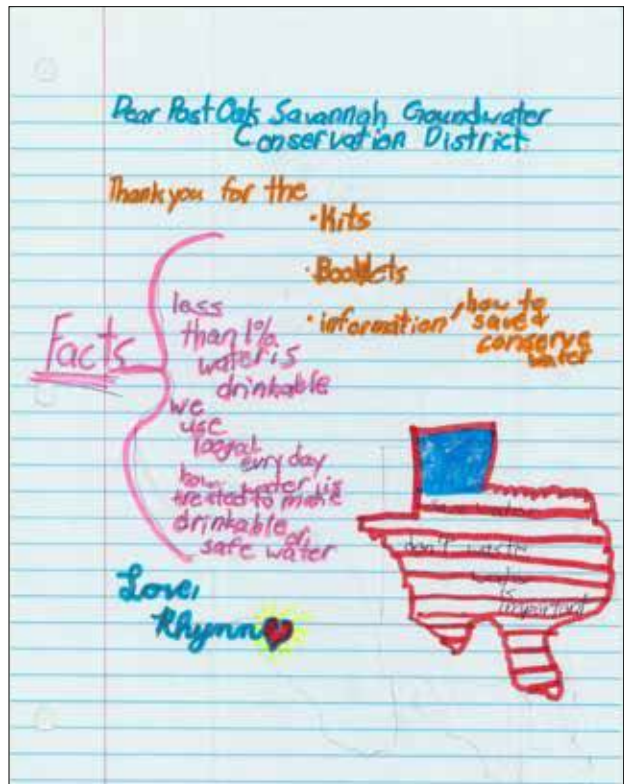 Dear Post Oak Savannah Groundwater
Conservation District
Thank you for the
• Kits
• Booklets
• information, how to
save &
conserve
water
Facts
less
than 1%
water is
drinkable
we
use
100gal
evry day
how water is
treated to make
drinkable or
safe water
save water
don't waste
water
is
important
Love,
Rhymn